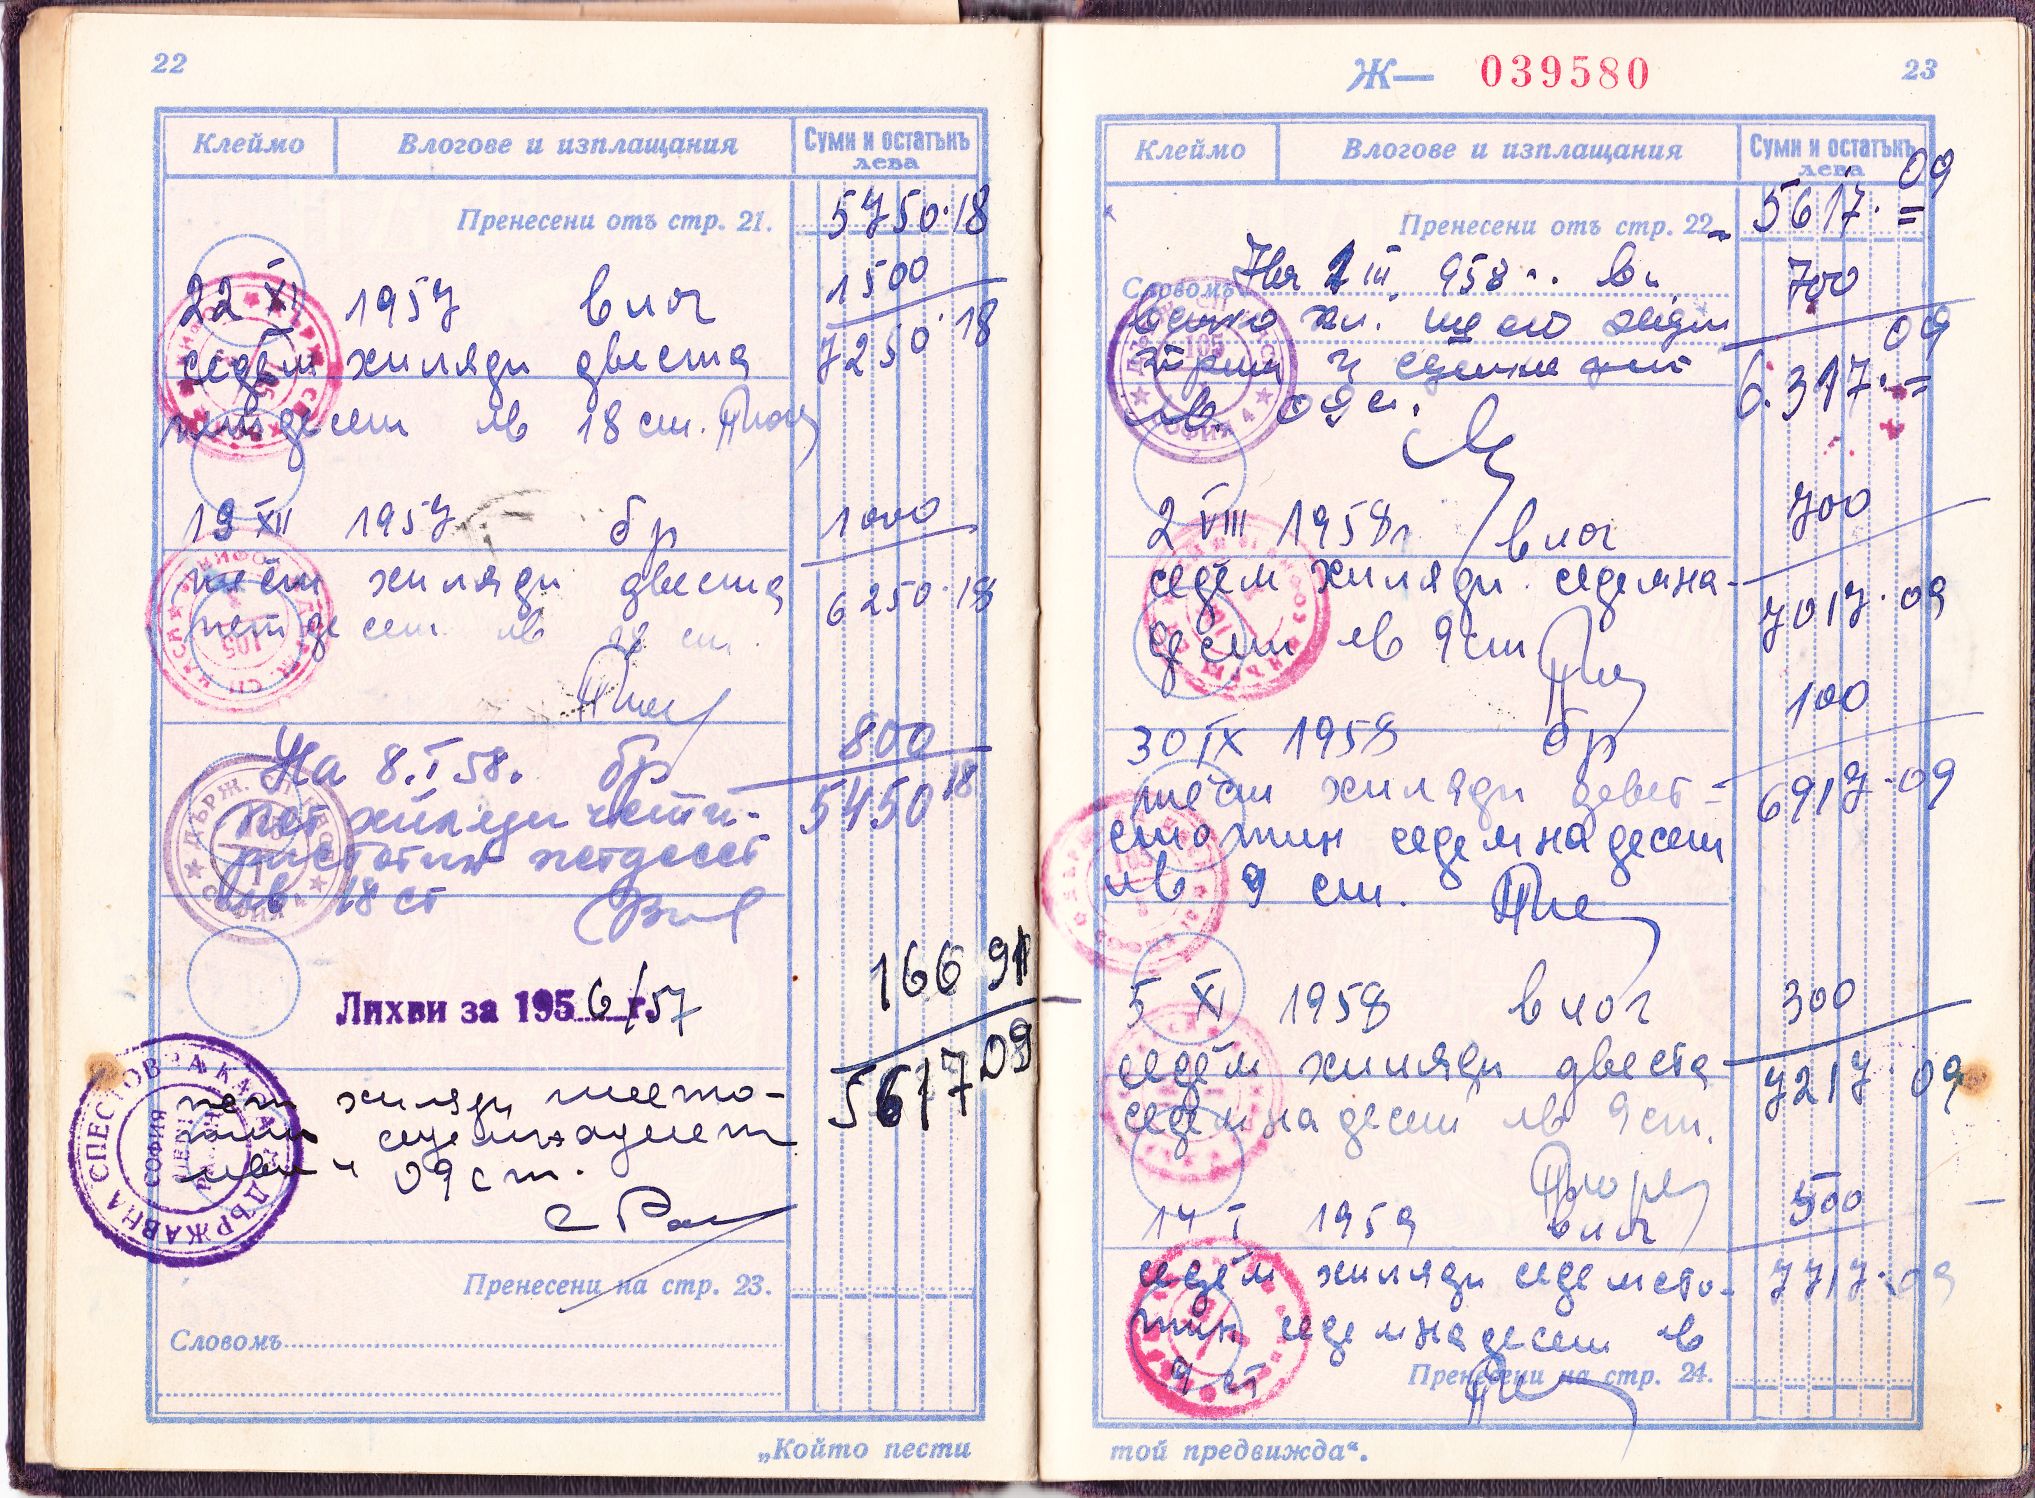 22
Клеймо
Влогове и изплащания
Суми и остатъкъ
лева
Пренесени отъ стр. 21.
5750.18
22 XI 1957 влог
1500
седем хиляди двеста
7250.18
петдесет лв 18 ст.
19 XII 1957 бр
1000
шест хиляди двеста
6250.18
петдесет лв 18 ст.
На 8.I 58. бр
800
пет хиляди чети-
5450 18
ристотин петдесет
лв 18 ст
Лихви за 1956/57 г.
166 91
пет хиляди шесто-
5617 09
тин седемнадесет
лева и 09 ст.
Пренесени на стр. 23.
Словомъ
„Който пести
ДЪРЖАВНА СПЕСТОВНА КАСА
СОФИЯ
ДЪРЖ. СП. КАСА
СОФИЯ 4
105
Ж— 039580
23
Клеймо
Влогове и изплащания
Суми и остатъкъ
лева
Пренесени отъ стр. 22
5617.09
Словомъ
На 1 III 958 г. вл
700
6.317.09
лв. 09 ст.
105
СОФИЯ 4
2 VIII 1958г влог
700
седем хиляди седемна-
7017.09
десет лв 9 ст
30 IX 1958 бр
100
шест хиляди девет-
6917.09
стотин седемнадесет
лв 9 ст.
5 XI 1958 влог
300
седем хиляди двеста
7217.09
седемнадесет лв 9 ст.
14 I 1959 влог
500
седем хиляди седемсто-
7717.09
тин седемнадесет лв
9 ст
Пренесени на стр. 24.
той предвижда“.